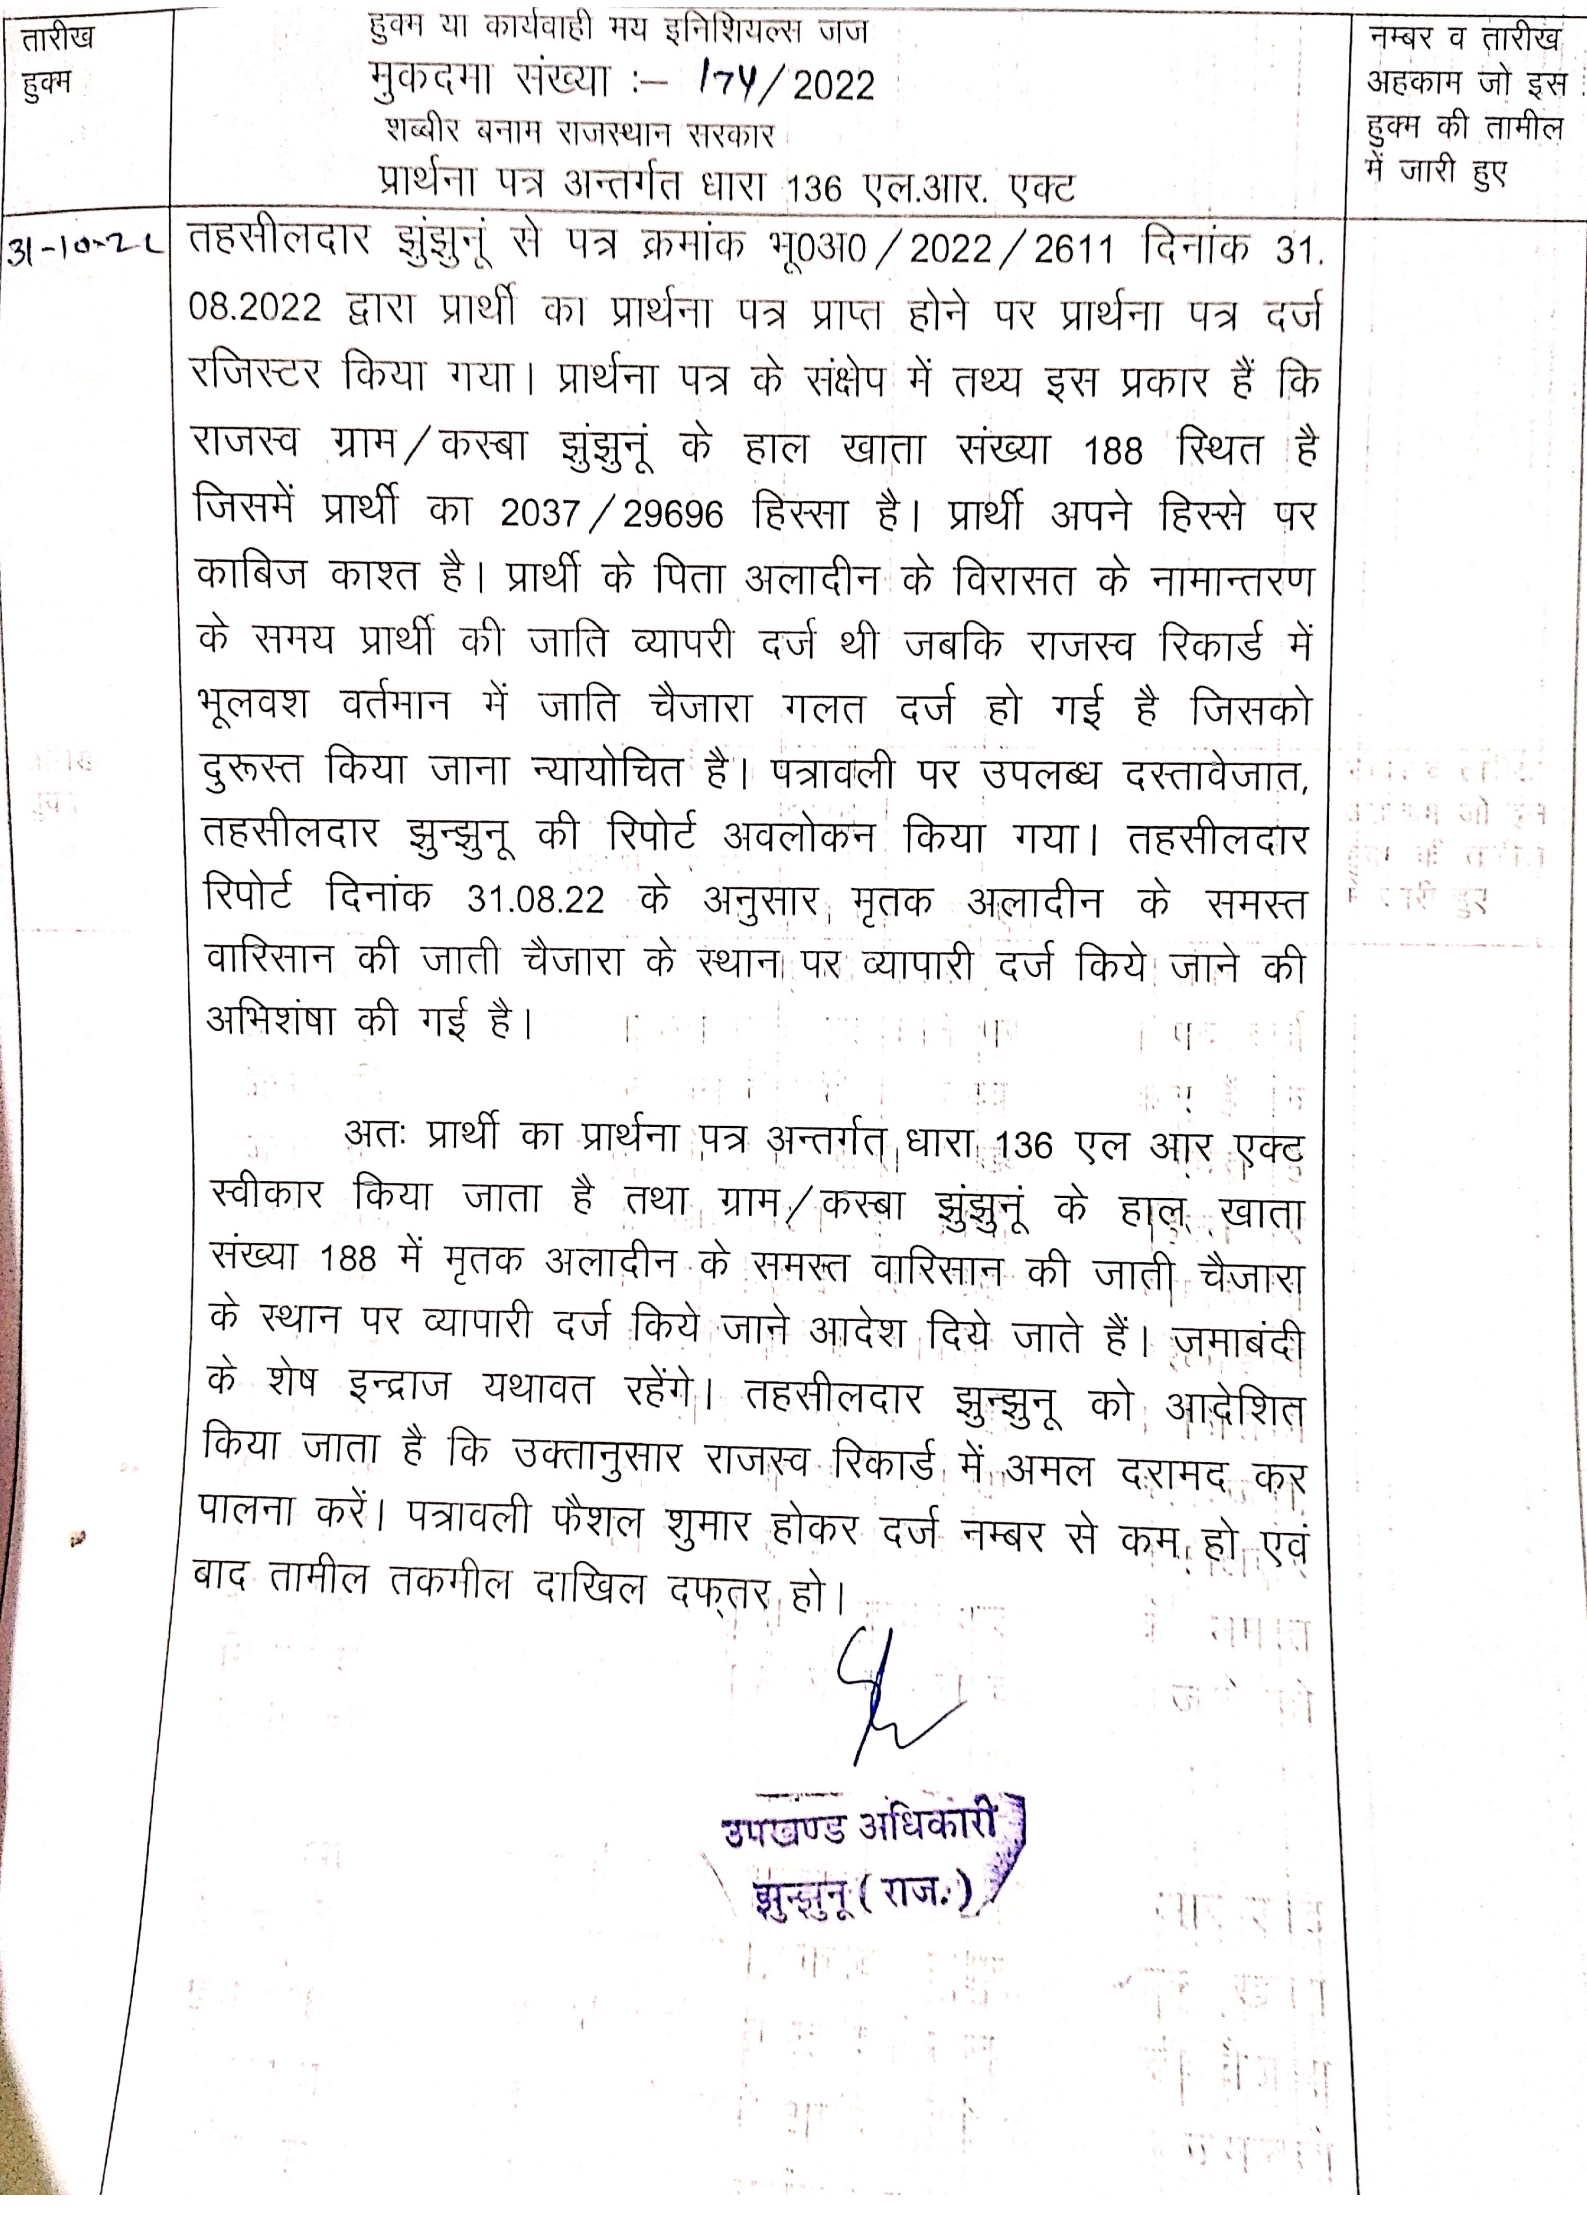 तारीख
हुक्म
हुक्म या कार्यवाही मय इनिशियल्स जज
मुकदमा संख्या :– 174/2022
शब्बीर बनाम राजस्थान सरकार
प्रार्थना पत्र अन्तर्गत धारा 136 एल.आर. एक्ट
नम्बर व तारीख
अहकाम जो इस
हुक्म की तामील
में जारी हुए
31-10-22
तहसीलदार झुंझुनूं से पत्र क्रमांक भू0अ0/2022/2611 दिनांक 31.
08.2022 द्वारा प्रार्थी का प्रार्थना पत्र प्राप्त होने पर प्रार्थना पत्र दर्ज
रजिस्टर किया गया। प्रार्थना पत्र के संक्षेप में तथ्य इस प्रकार हैं कि
राजस्व ग्राम/कस्बा झुंझुनूं के हाल खाता संख्या 188 स्थित है
जिसमें प्रार्थी का 2037/29696 हिस्सा है। प्रार्थी अपने हिस्से पर
काबिज काश्त है। प्रार्थी के पिता अलादीन के विरासत के नामान्तरण
के समय प्रार्थी की जाति व्यापरी दर्ज थी जबकि राजस्व रिकार्ड में
भूलवश वर्तमान में जाति चैजारा गलत दर्ज हो गई है जिसको
दुरूस्त किया जाना न्यायोचित है। पत्रावली पर उपलब्ध दस्तावेजात,
तहसीलदार झुन्झुनू की रिपोर्ट अवलोकन किया गया। तहसीलदार
रिपोर्ट दिनांक 31.08.22 के अनुसार मृतक अलादीन के समस्त
वारिसान की जाती चैजारा के स्थान पर व्यापारी दर्ज किये जाने की
अभिशंषा की गई है।
अतः प्रार्थी का प्रार्थना पत्र अन्तर्गत धारा 136 एल आर एक्ट
स्वीकार किया जाता है तथा ग्राम/कस्बा झुंझुनूं के हाल खाता
संख्या 188 में मृतक अलादीन के समस्त वारिसान की जाती चैजारा
के स्थान पर व्यापारी दर्ज किये जाने आदेश दिये जाते हैं। जमाबंदी
के शेष इन्द्राज यथावत रहेंगे। तहसीलदार झुन्झुनू को आदेशित
किया जाता है कि उक्तानुसार राजस्व रिकार्ड में अमल दरामद कर
पालना करें। पत्रावली फैशल शुमार होकर दर्ज नम्बर से कम हो एवं
बाद तामील तकमील दाखिल दफ्तर हो।
उपखण्ड अधिकारी
झुन्झुनू (राज.)